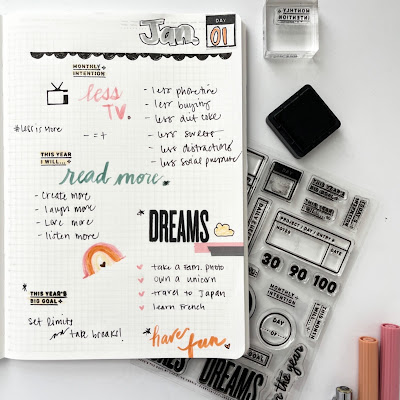 Jan.
DAY
01
MONTHLY
INTENTION
less
TV.
- less phone time
- less buying
- less diet coke
- less sweets
- less distractions
- less social pressure
#less is more
- = +
THIS YEAR
I WILL...
read more
- create more
- laugh more
- Love more
- listen more
DREAMS
take a fam. photo
own a unicorn
travel to Japan
learn French
THIS YEAR'S
BIG GOAL
Set limits
take breaks!
have fun
MONTHLY
INTENTION
PROJECT / DAY / ENTRY
NOTES
DATE
30 90 100
MONTHLY
INTENTION
THIS MONTH
DAY
-OF-
GOAL
DREAMS
the year